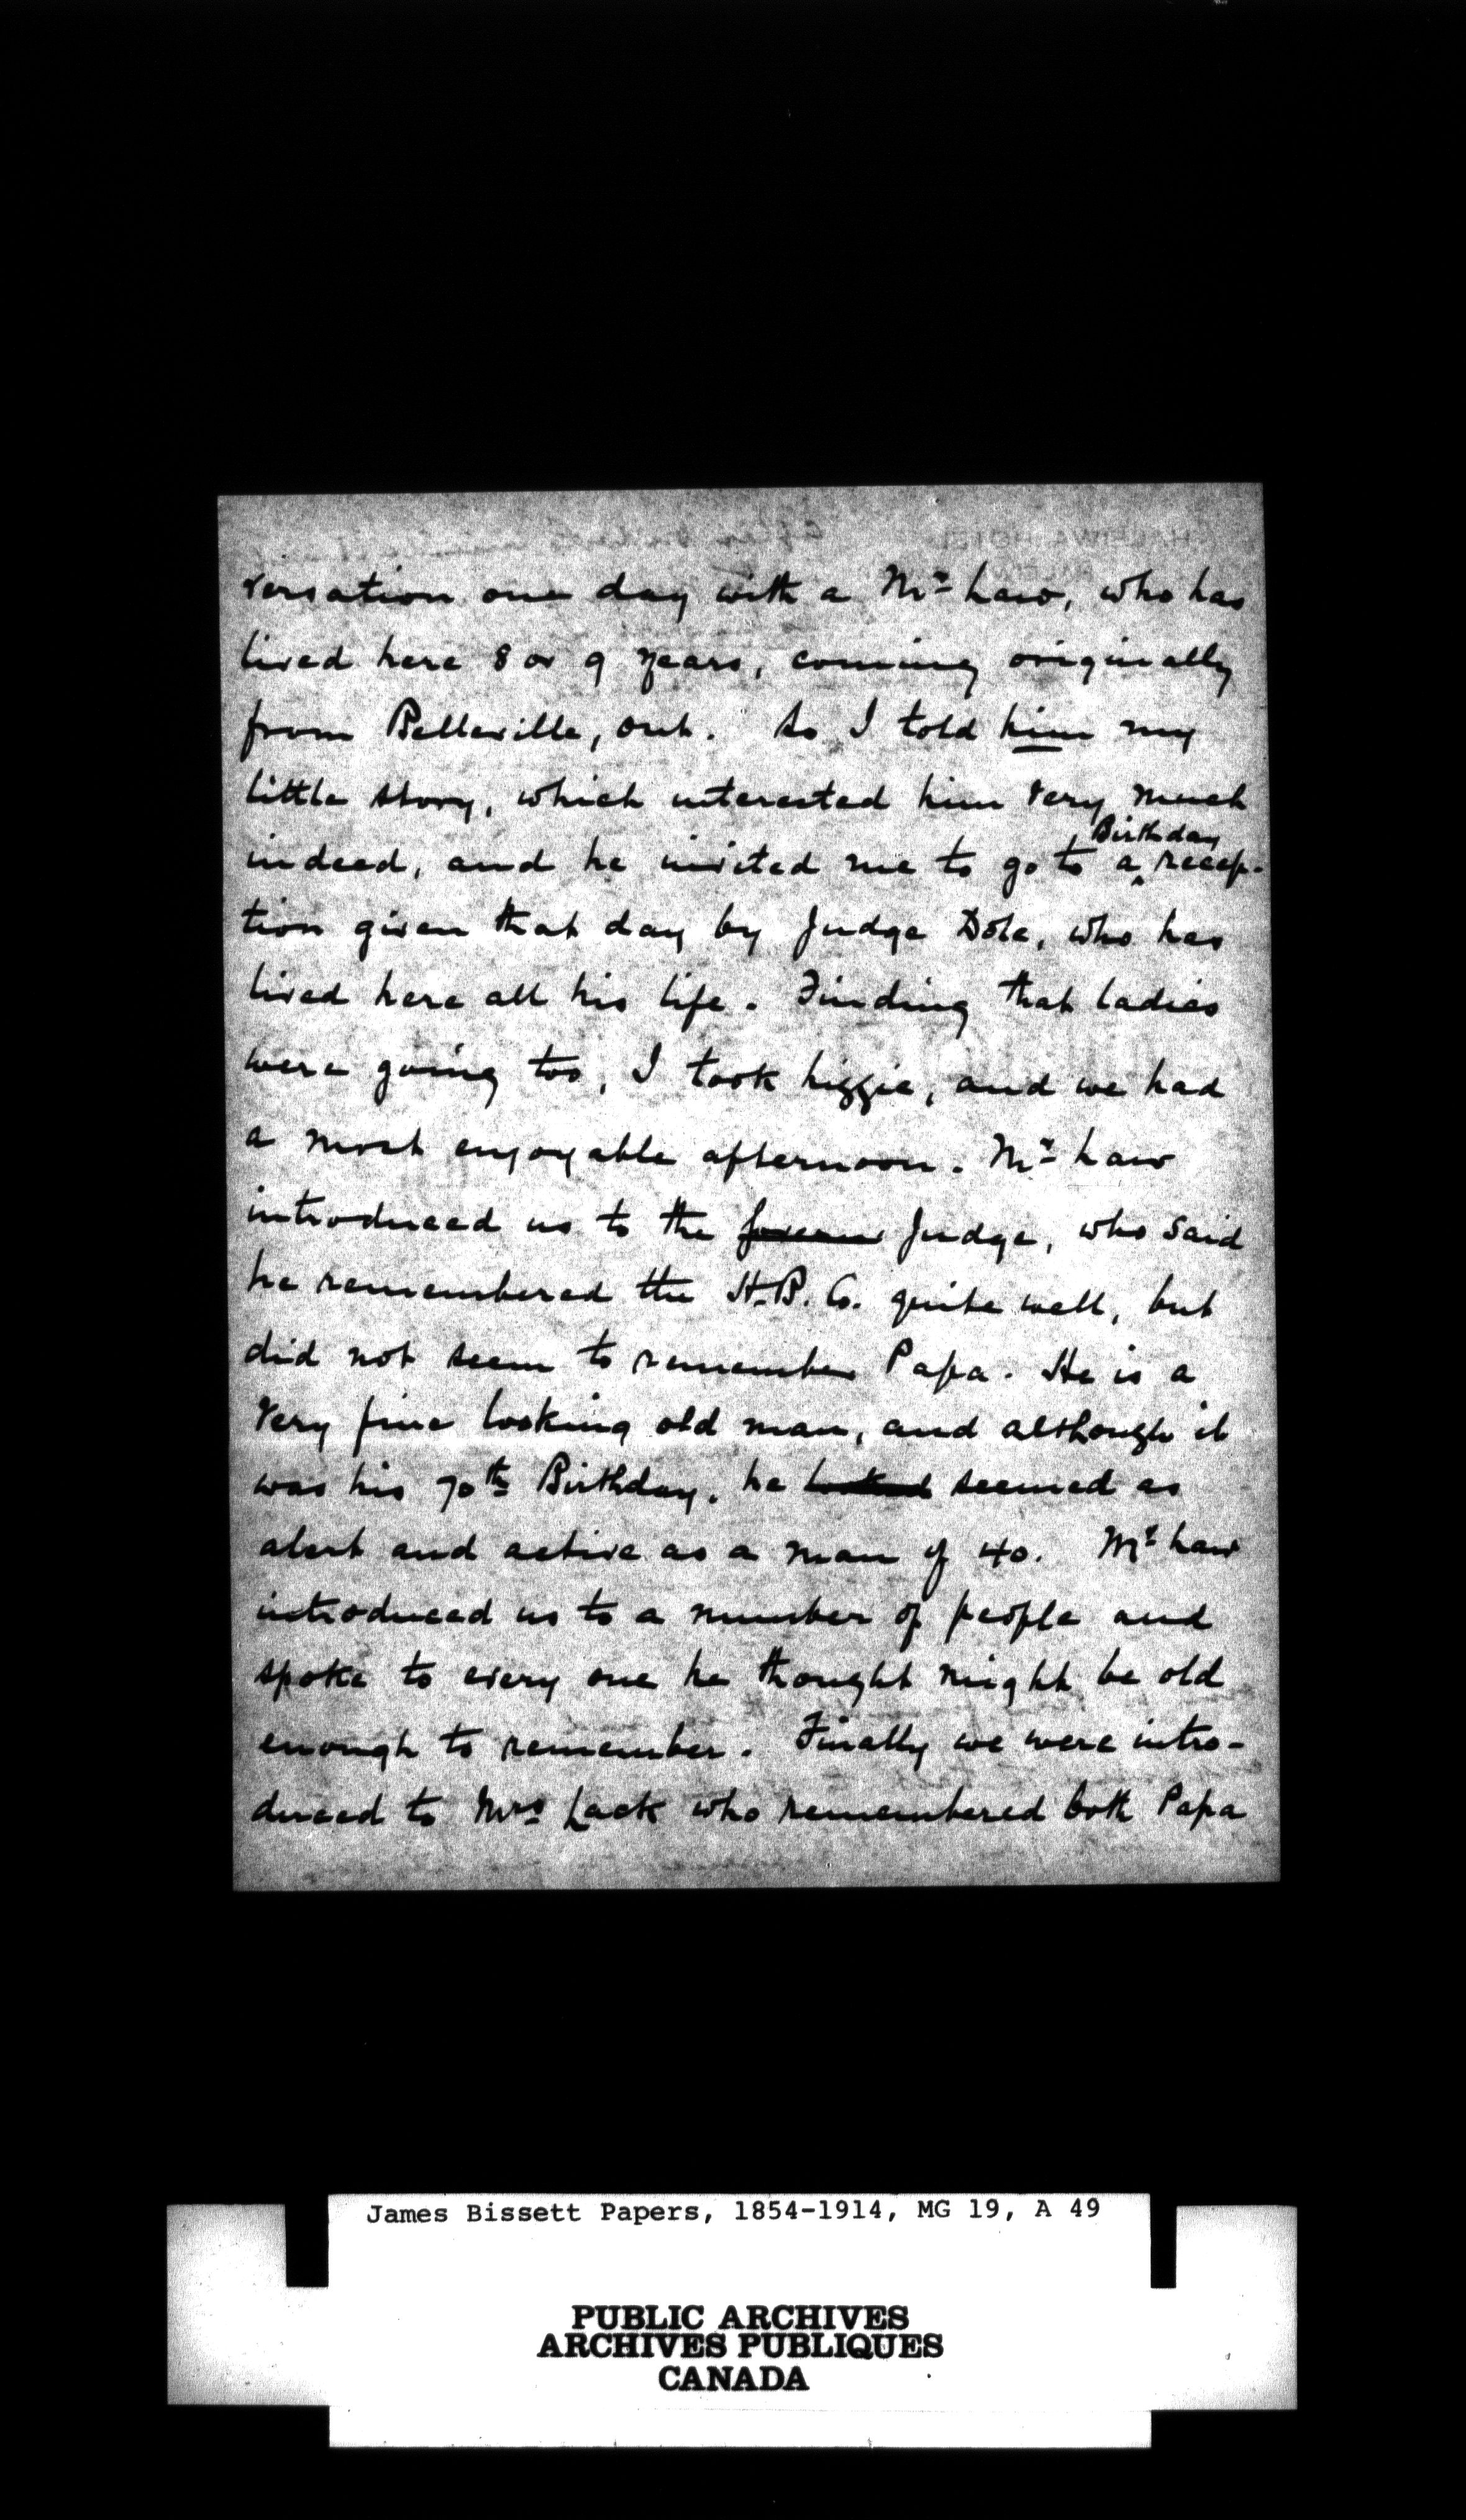 versation one day with a Mr Law, who has
lived here 8 or 9 years, coming originally
from Belleville, Ont. So I told him my
little story, which interested him very much
Birthday
indeed, and he invited me to go to a recep-
tion given that day by Judge Dole, who has
lived here all his life. Finding that ladies
were going too, I took Lizzie, and we had
a most enjoyable afternoon. Mr Law
introduced us to the Judge, who said
he remembered the H.B. Co. quite well, but
did not seem to remember Papa. He is a
very fine looking old man, and although it
was his 70th Birthday, he looked seemed as
alert and active as a man of 40. Mr Law
introduced us to a number of people and
spoke to every one he thought might be old
enough to remember. Finally we were intro-
duced to Mrs Lack who remembered both Papa
James Bissett Papers, 1854-1914, MG 19, A 49
PUBLIC ARCHIVES
ARCHIVES PUBLIQUES
CANADA